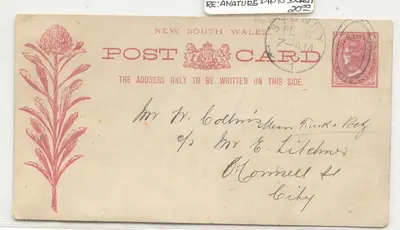 RE: AMATURE PHOTO SOCIETY
20.00
NEW SOUTH WALES
POST CARD
THE ADDRESS ONLY TO BE WRITTEN ON THIS SIDE.
7- AM
1
Mr W. Collins
c/o Mr E. Litchner
O'Connell St
City